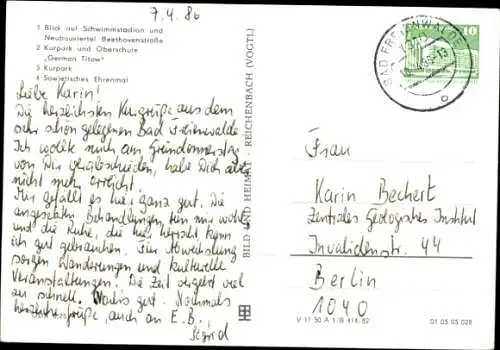 7.4.86
1 Blick auf Schwimmstadion und
Neubauviertel Beethovenstraße
2 Kurpark und Oberschule
„German Titow"
3 Kurpark
4 Sowjetisches Ehrenmal
Liebe Karin!
Die herzlichsten Kurgrüße aus dem
sehr schön gelegenen Bad Freienwalde.
Ich wollte mich am Gründonnerstag
von Dir verabschieden, habe Dich aber
nicht mehr erreicht.
Mir gefällt es hier ganz gut. Die
angesetzten Behandlungen tun mir wohl
und die Ruhe, die hier herrscht kann
ich gut gebrauchen. Für Abwechslung
sorgen Wanderungen und kulturelle
Veranstaltungen. Die Zeit vergeht viel
zu schnell. gut. Nochmals
herzliche Grüße, auch an E. B.,
Sigrid
BILD UND HEIMAT · REICHENBACH (VOGTL)
BAD FREIENWALDE
10
Frau
Karin Bechert
Zentrales Geologisches Institut
Invalidenstr. 44
Berlin
1040
V 11 50 A 1/B 414/82
01 05 65 028